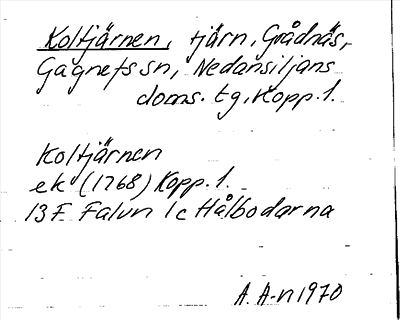 Koltjärnen, tjärn, Grådnäs,
Gagnefs sn, Nedansiljans
doms. tg, Kopp. l.
Koltjärnen
ek (1768) Kopp. l.
13 F Falun 1c Hålbodarna
A. A-n 1970